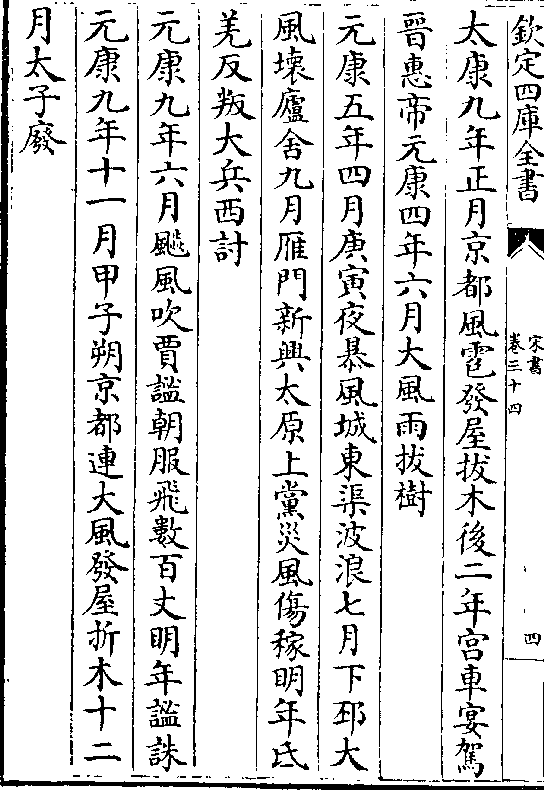 欽定四庫全書
宋書
卷三十四
四
太康九年正月京都風雹發屋拔木後二年宫車宴駕
晉惠帝元康四年六月大風雨拔樹
元康五年四月庚寅夜暴風城東渠波浪七月下邳大
風壊廬舍九月雁門新興太原上黨災風傷稼明年氐
羌反叛大兵西討
元康九年六月飈風吹賈謐朝服飛數百丈明年謐誅
元康九年十一月甲子朔京都連大風發屋折木十二
月太子廢